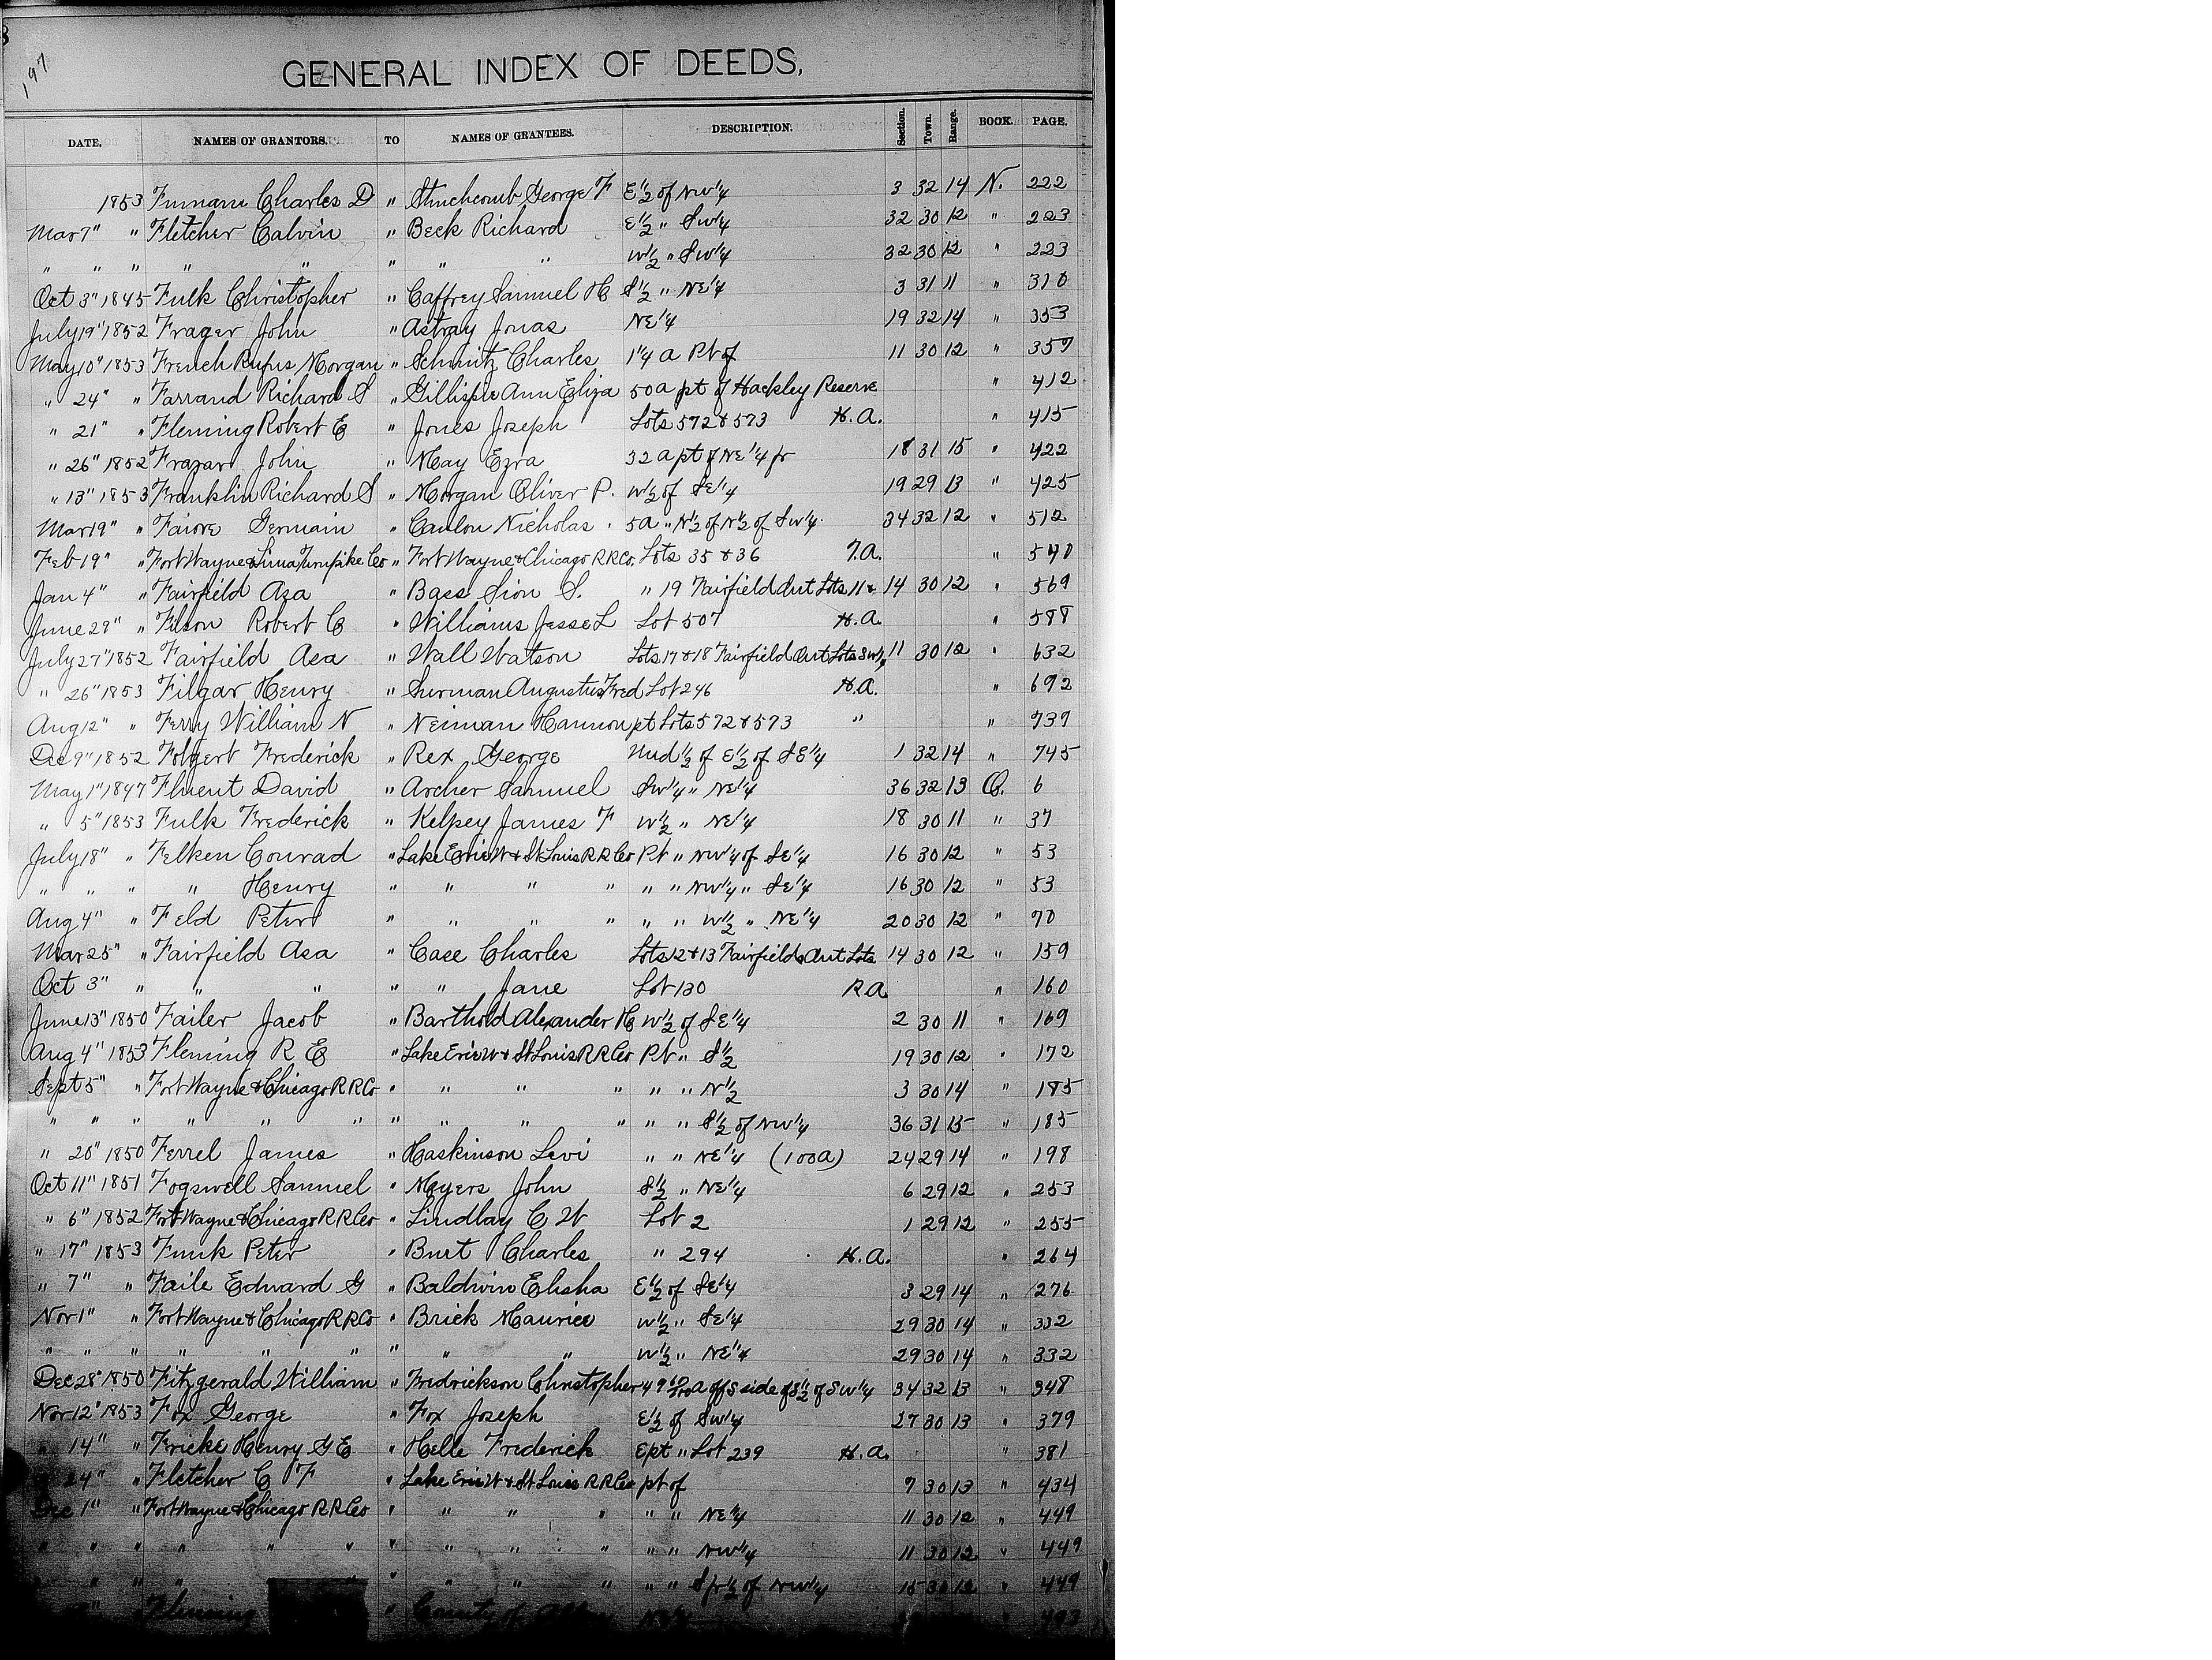 197
GENERAL INDEX OF DEEDS,
DATE, NAMES OF GRANTORS. TO NAMES OF GRANTEES. DESCRIPTION. Section. Town. Range. BOOK. PAGE.
1853 Furnam Charles D " Stinchcomb George F E 1/2 of NW 1/4 3 32 14 N. 222
Mar 7" " Fletcher Calvin " Beck Richard E 1/2 " SW 1/4 32 30 12 " 223
" " " " " " " " W 1/2 " SW 1/4 32 30 12 " 223
Oct 3" 1845 Fulk Christopher " Caffrey Samuel H S 1/2 " NE 1/4 3 31 11 " 310
July 19" 1852 Frazer John " Astray Jonas NE 1/4 19 32 14 " 353
May 10" 1853 French Rufus Morgan " Schmitz Charles 1 1/4 a Pt of 11 30 12 " 359
" 24" " Farrand Richard S " Gillispie Ann Eliza 50a pt of Hackley Reserve " 412
" 21" " Fleming Robert E " Jones Joseph Lots 572 & 573 H.A. " 415
" 26" 1852 Frazar John " May Ezra 32 a pt of NE 1/4 fr 18 31 15 " 422
" 13" 1853 Franklin Richard S " Morgan Oliver P. W 1/2 of SE 1/4 19 29 13 " 425
Mar 19" " Faiore Germain " Canlon Nicholas 5a " N 1/2 of N 1/2 of SW 1/4 34 32 12 " 512
Feb 19" " Fort Wayne & Lima Turnpike Co " Fort Wayne & Chicago R R Co. Lots 35 & 36 T.A. " 540
Jan 4" " Fairfield Asa " Bass Sion S. " 19 Fairfield Out Lots 11 & 14 30 12 " 569
June 29" " Filson Robert C " Williams Jesse L Lot 507 H.A. " 588
July 27" 1852 Fairfield Asa " Wall Watson Lots 17 & 18 Fairfield Out Lots SW 1/4 11 30 12 " 632
" 26" 1853 Filgar Henry " Surman Augustus Fred Lot 246 H.A. " 692
Aug 12" " Ferry William N " Neiman Harmon pt Lots 572 & 573 " " 739
Dec 9" 1852 Folgert Frederick " Rex George Und 1/2 of E 1/2 of SE 1/4 1 32 14 " 745
May 1" 1847 Fluent David " Archer Samuel SW 1/4 " NE 1/4 36 32 13 O. 6
" 5" 1853 Fulk Frederick " Kelpey James F W 1/2 " NE 1/4 18 30 11 " 37
July 18" " Felken Conrad " Lake Erie W & St Louis R R Co Pt " NW 1/4 of SE 1/4 16 30 12 " 53
" " " " Henry " " " " " " NW 1/4 " SE 1/4 16 30 12 " 53
Aug 4" " Feld Peter " " " " " " W 1/2 " NE 1/4 20 30 12 " 70
Mar 25" " Fairfield Asa " Case Charles Lots 12 & 13 Fairfields Out Lots 14 30 12 " 159
Oct 3" " " " " " Jane Lot 130 R.A. " 160
June 13" 1850 Failer Jacob " Barthold Alexander H W 1/2 of SE 1/4 2 30 11 " 169
Aug 4" 1853 Fleming R E " Lake Erie W & St Louis R R Co Pt " S 1/2 19 30 12 " 172
Sept 5" " Fort Wayne & Chicago R R Co " " " " " " N 1/2 3 30 14 " 185
" " " " " " " " " " " " S 1/2 of NW 1/4 36 31 15 " 185
" 20" 1850 Ferrel James " Haskinson Levi " " NE 1/4 (100a) 24 29 14 " 198
Oct 11" 1851 Fogswell Samuel " Meyers John S 1/2 " NE 1/4 6 29 12 " 253
" 6" 1852 Fort Wayne & Chicago R R Co " Lindlay C W Lot 2 1 29 12 " 255
" 17" 1853 Funk Peter " Burt Charles " 294 H.A. " 264
" 7" " Faile Edward G " Baldwin Elisha E 1/2 of SE 1/4 3 29 14 " 276
Nov 1" " Fort Wayne & Chicago R R Co " Brick Maurice W 1/2 " SE 1/4 29 30 14 " 332
" " " " " " " " " W 1/2 " NE 1/4 29 30 14 " 332
Dec 28" 1850 Fitzgerald William " Fredrickson Christopher 49 a off S side of S 1/2 of SW 1/4 34 32 13 " 348
Nov 12" 1853 Fox George " Fox Joseph E 1/2 of SW 1/4 27 30 13 " 379
" 14" " Fricke Henry G E " Helle Frederick E pt " Lot 239 H.A. " 381
" 24" " Fletcher C F " Lake Erie W & St Louis R R Co pt of 7 30 13 " 434
Dec 1" " Fort Wayne & Chicago R R Co " " " " " " NE 1/4 11 30 12 " 449
" " " " " " " " " " " " NW 1/4 11 30 12 " 449
" " " " " " " " " S fr 1/2 of NW 1/4 15 30 12 " 449
" Fleming " County of Allen